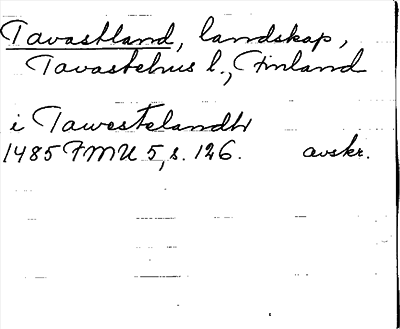 Tavastland, landskap,
Tavastehus l., Finland
i Tawestelandh
1485 FMU 5, s. 126. avskr.